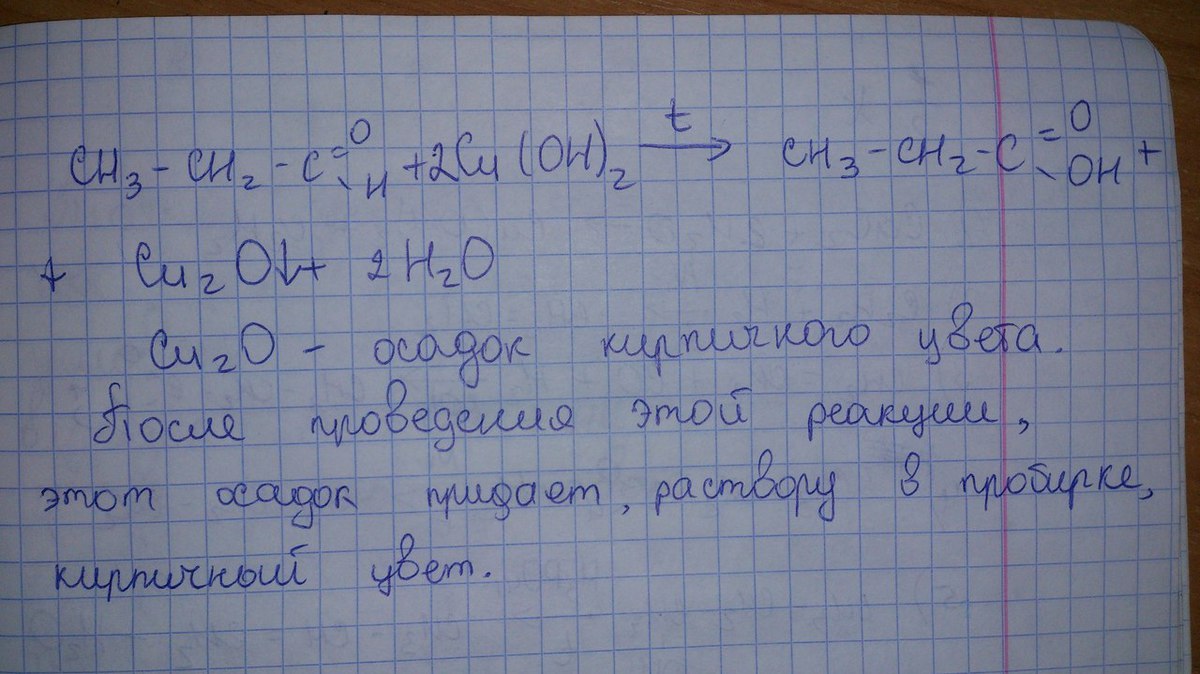 CH₃ - CH₂ - C =O -H + 2Cu(OH)₂ t → CH₃ - CH₂ - C =O -OH +
+ Cu₂O↓ + 2H₂O
Cu₂O - осадок кирпичного цвета.
После проведения этой реакции,
этот осадок придает, раствору в пробирке,
кирпичный цвет.